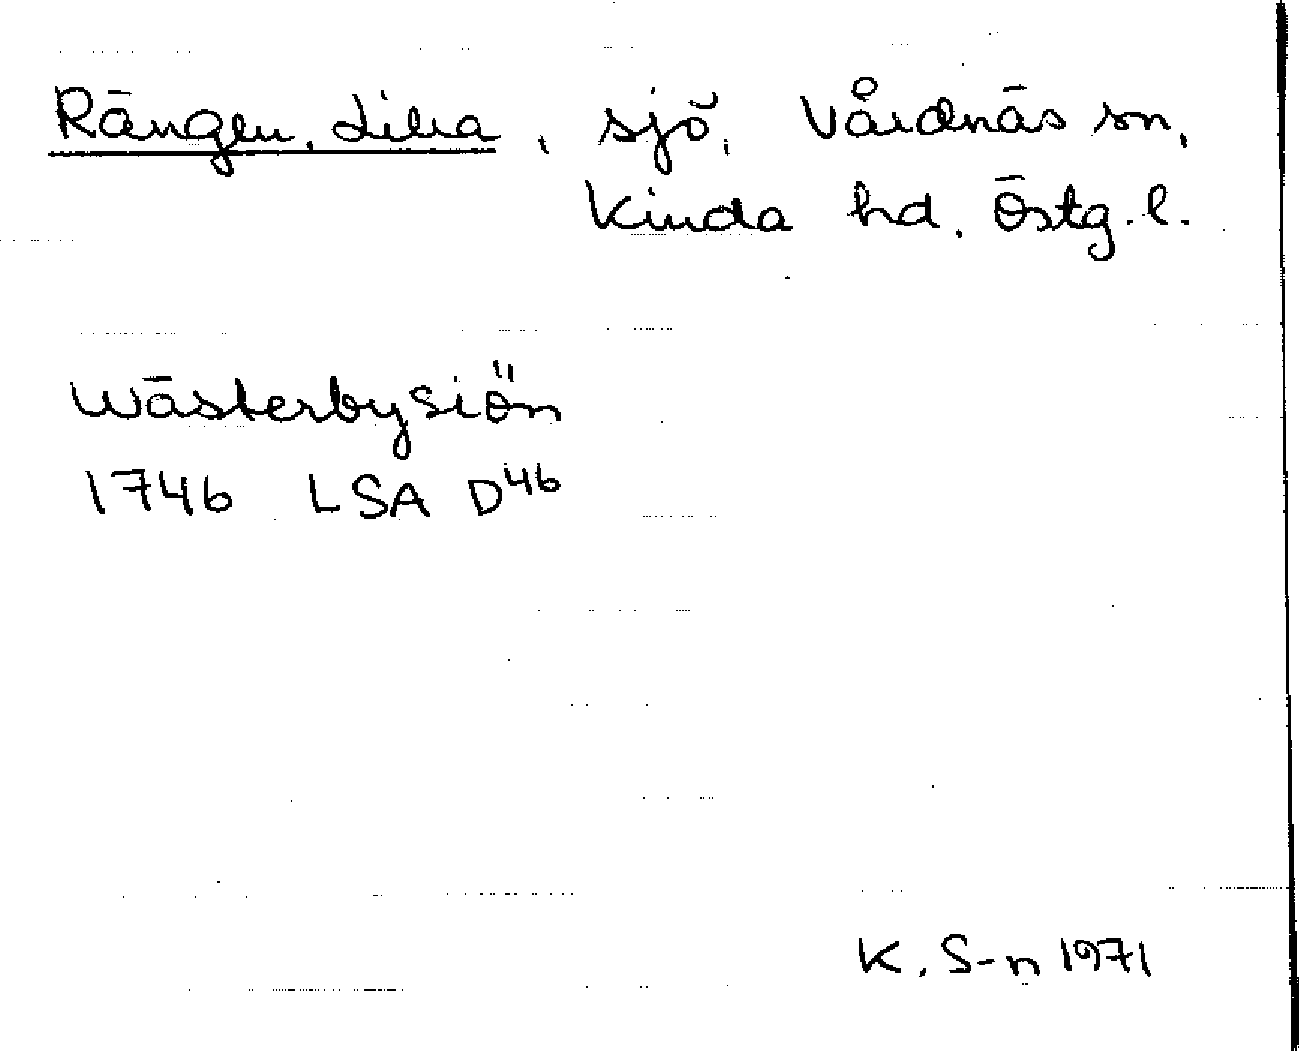 Rängen, Lilla, sjö, Vårdnäs sn,
Kinda hd. Östg. l.
Wästerbysiön
1746 LSA D46
K. S-n 1971